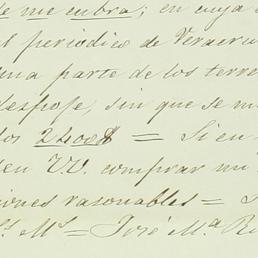 de me cubra; en cuya
el periodico de Veracru
una parte de los terre
despoje, sin que se m
los 2400$ = Si en
en VV. comprar mi
iones rasonables =
Ms = José Ma